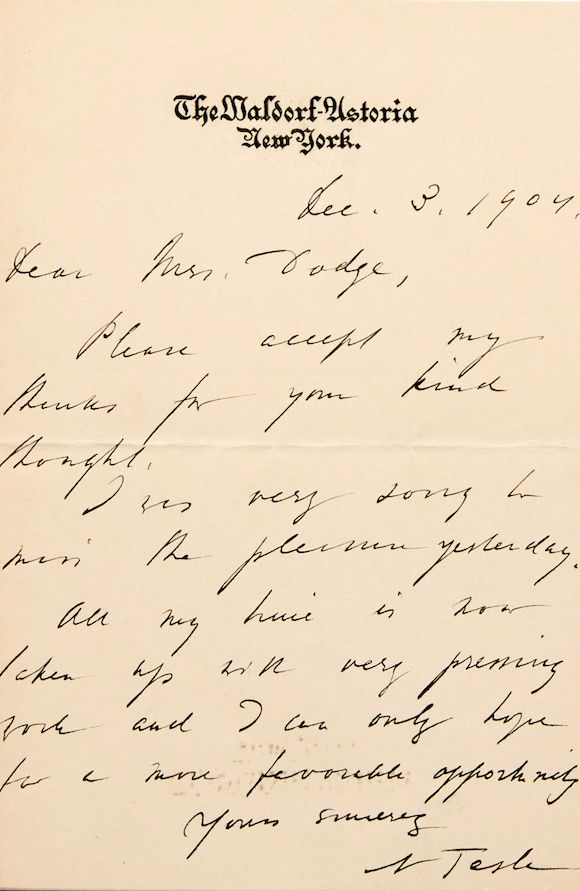 The Waldorf-Astoria
New York.
Dec. 3. 1904.
Dear Mrs. Dodge,
Please accept my
thanks for your kind
thought.
I was very sorry to
miss the pleasure yesterday.
All my time is now
taken up with very pressing
work and I can only hope
for a more favorable opportunity
Yours sincerely
N Tesla